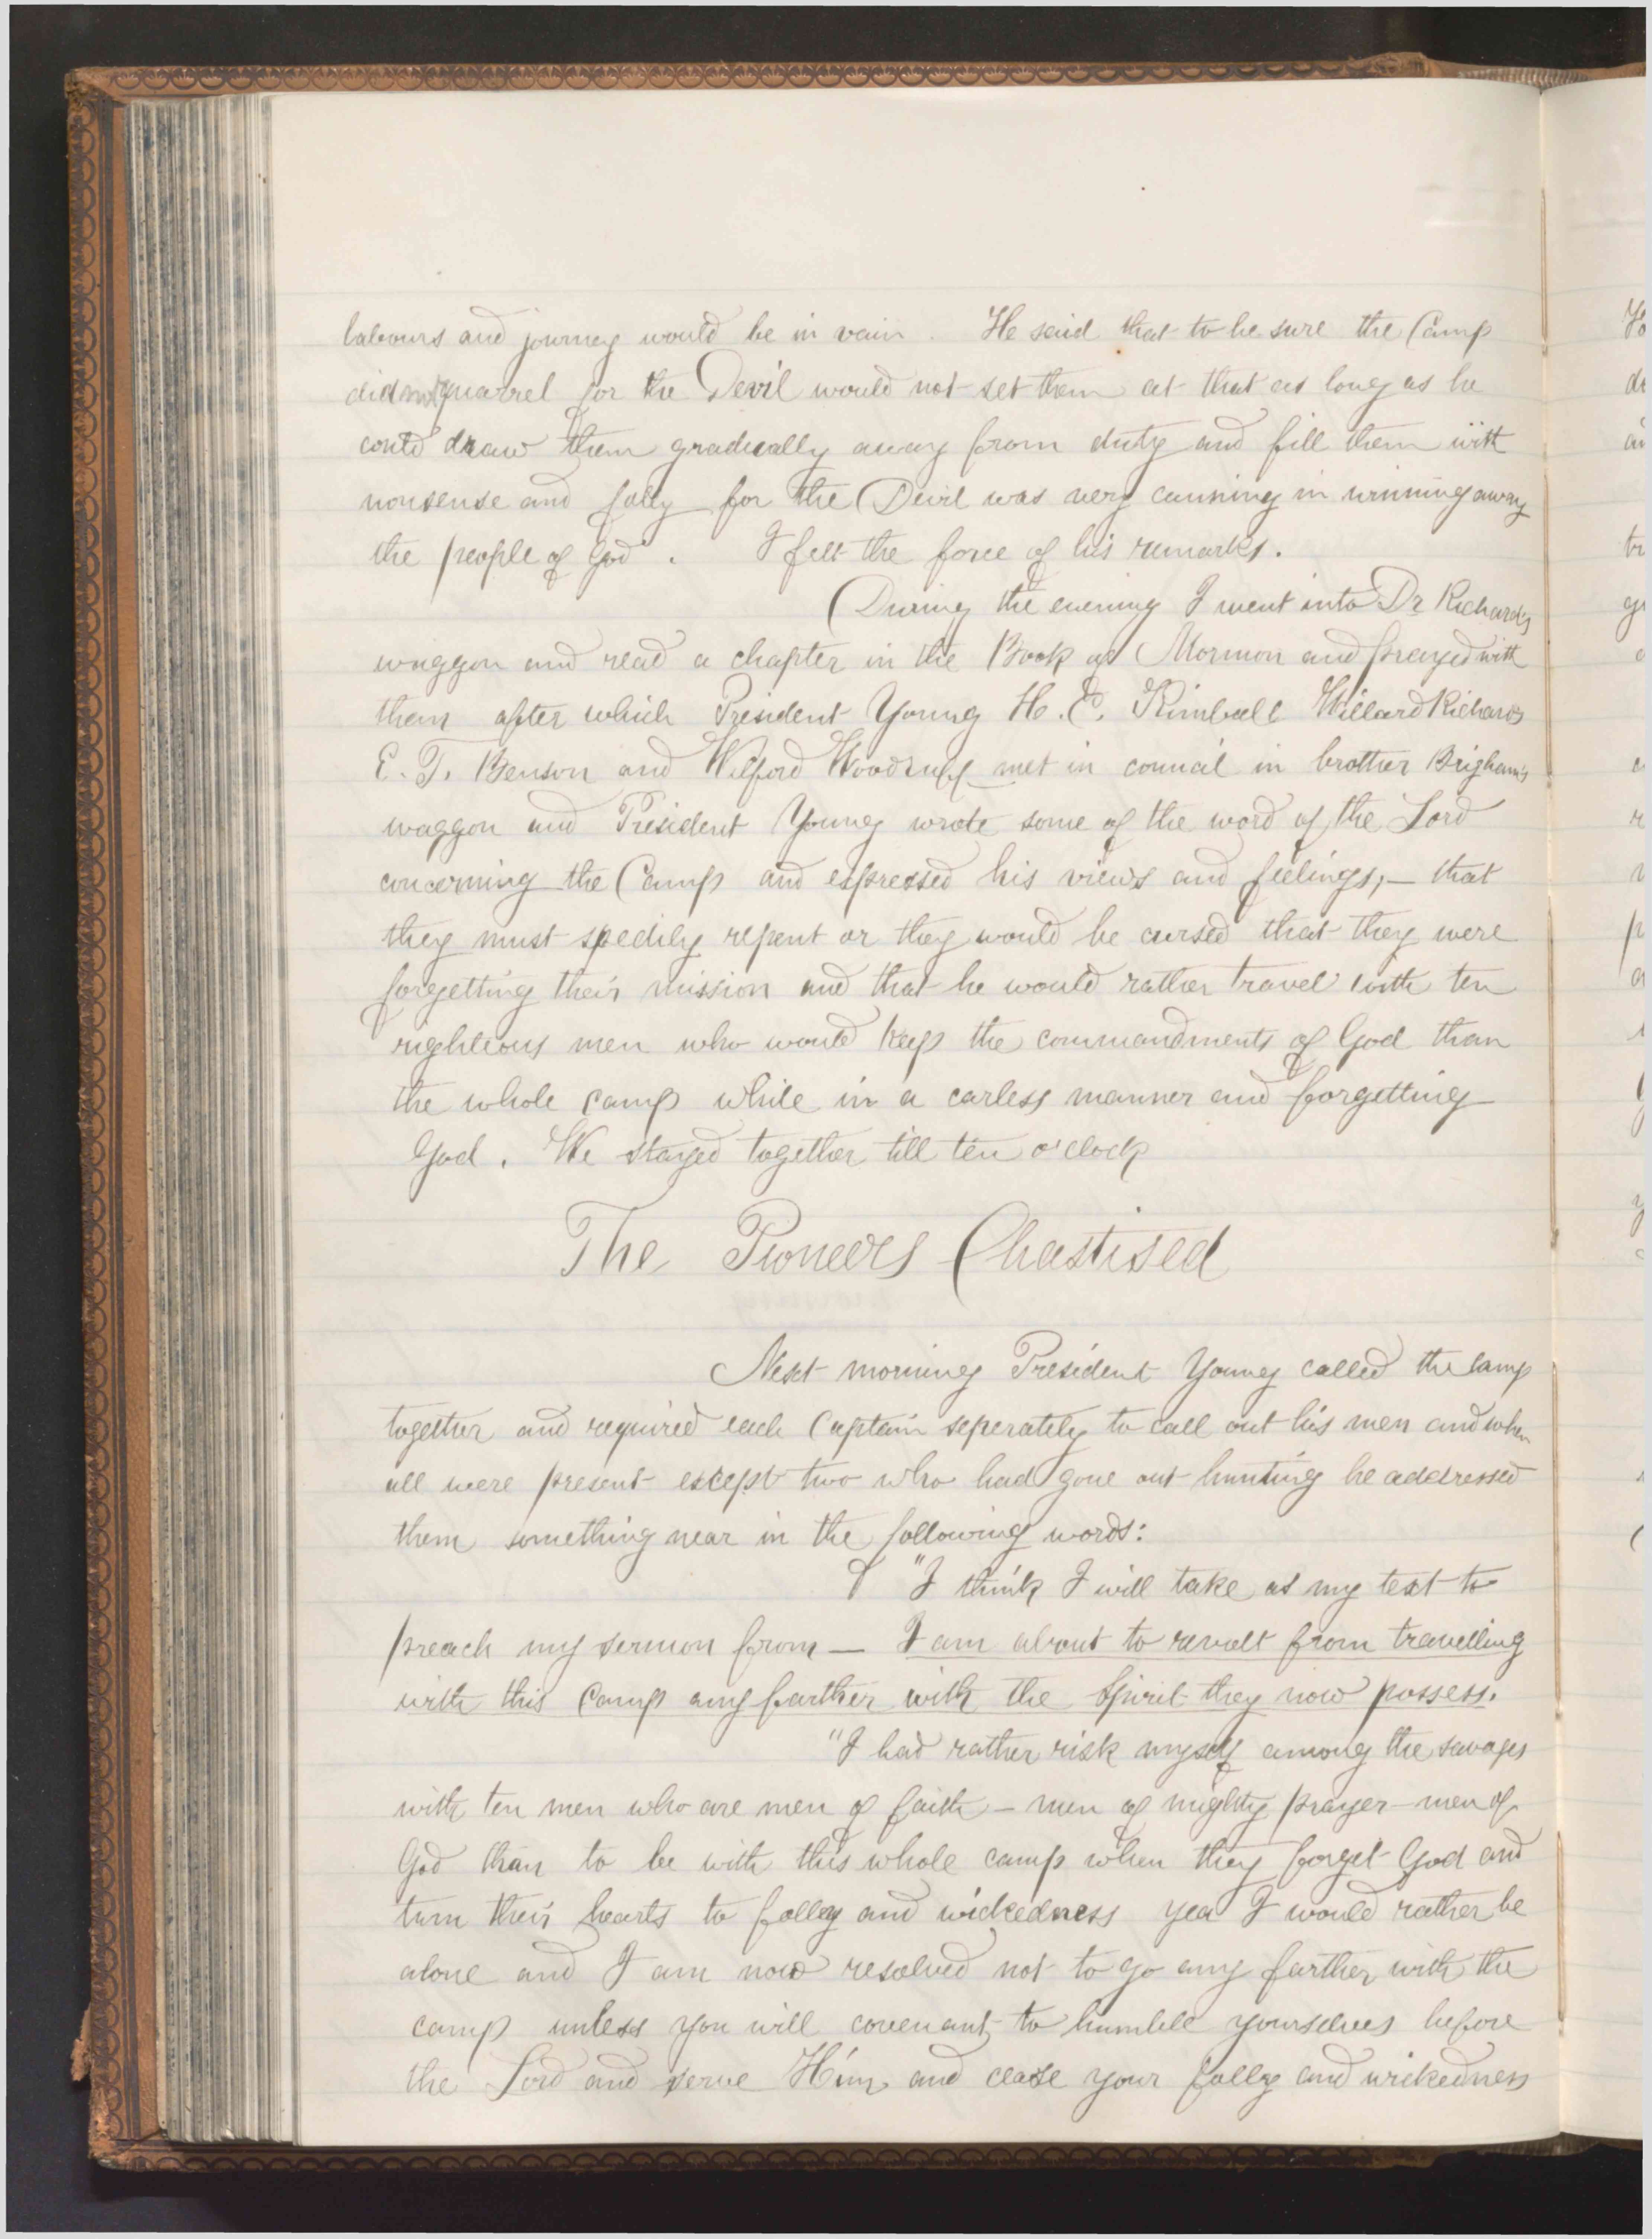 labours and journey would be in vain. He said that to be sure the Camp
did not quarrel for the Devil would not set them at that as long as he
could draw them gradually away from duty and fill them with
nonsense and folly for the Devil was very cunning in winning away
the people of God. I felt the force of his remarks.
During the evening I went into Dr Richards
waggon and read a chapter in the Book of Mormon and prayed with
them after which President Young H. C. Kimball Willard Richards
E. T. Benson and Wilford Woodruff met in council in brother Brigham's
waggon and President Young wrote some of the word of the Lord
concerning the Camp and expressed his views and feelings,— that
they must spedily repent or they would be cursed that they were
forgetting their mission and that he would rather travel with ten
righteous men who would keep the commandments of God than
the whole camp while in a carless manner and forgetting
God. We stayed together till ten o'clock
The Pioneers Chastised
Next morning President Young called the camp
together and required each Captain seperately to call out his men and when
all were present except two who had gone out hunting he addressed
them something near in the following words:
"I think I will take as my text to
preach my sermon from — I am about to revolt from travelling
with this Camp any farther with the Spirit they now possess.
"I had rather risk myself among the savages
with ten men who are men of faith — men of mighty prayer — men of
God than to be with this whole camp when they forget God and
turn their hearts to folly and wickedness yea I would rather be
alone and I am now resolved not to go any farther with the
camp unless you will covenant to humble yourselves before
the Lord and serve Him and cease your folly and wickedness